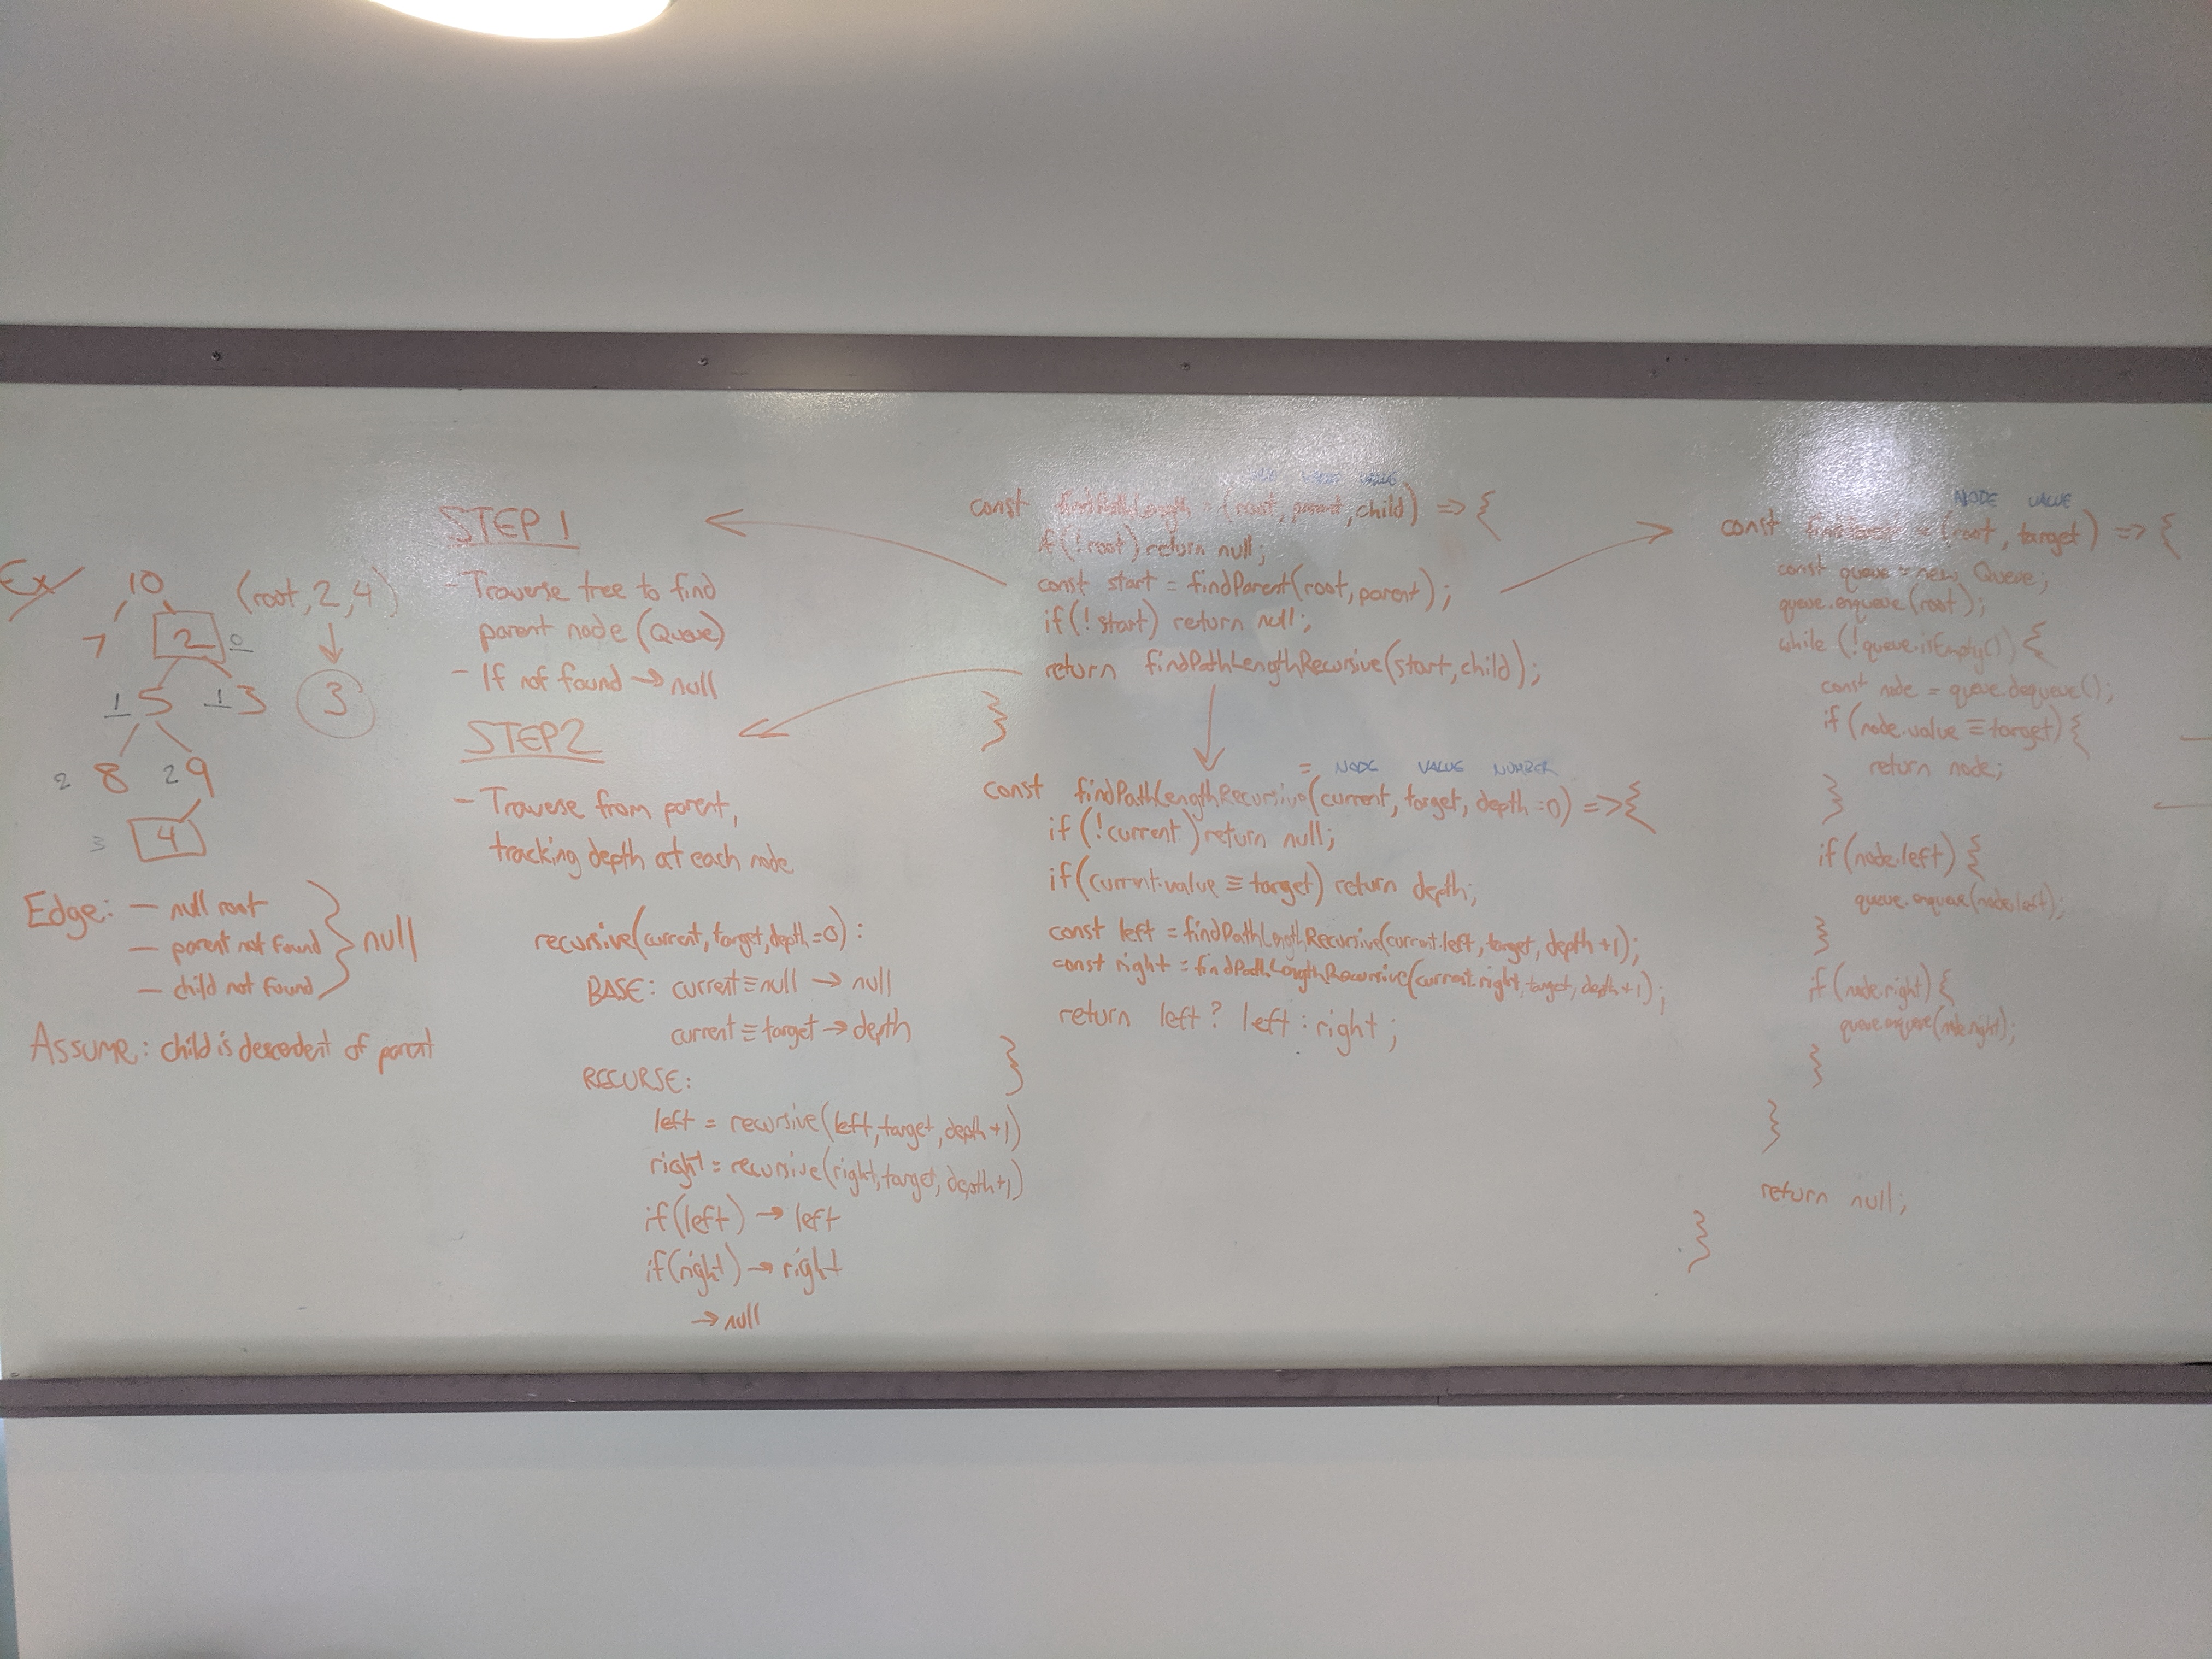 Ex
10
(root, 2, 4)
7
2
0
1
5
1
3
3
2
8
2
9
3
4
Edge: — null root
— parent not found
— child not found
null
Assume: child is descedent of parent
STEP 1
- Traverse tree to find
parent node (Queue)
- If not found → null
STEP 2
- Traverse from parent,
tracking depth at each node
recursive(current, target, depth=0):
BASE: current≡null → null
current≡target → depth
RECURSE:
left = recursive(left, target, depth+1)
right = recursive(right, target, depth+1)
if(left) → left
if(right) → right
→ null
VALUE
const findPathLength = (root, parent, child) => {
if(!root) return null;
const start = findParent(root, parent);
if(!start) return null;
return findPathLengthRecursive(start, child);
}
= NODE VALUE NUMBER
const findPathLengthRecursive(current, target, depth=0) => {
if(!current) return null;
if(current.value ≡ target) return depth;
const left = findPathLengthRecursive(current.left, target, depth+1);
const right = findPathLengthRecursive(current.right, target, depth+1);
return left ? left : right;
}
NODE VALUE
const = (root, target) => {
const queue = new Queue;
queue.enqueue(root);
while (!queue.isEmpty()) {
const node = queue.dequeue();
if(node.value ≡ target) {
return node;
}
if(node.left) {
queue.enqueue(node.left);
}
if(node.right) {
queue.enqueue(node.right);
}
}
return null;
}